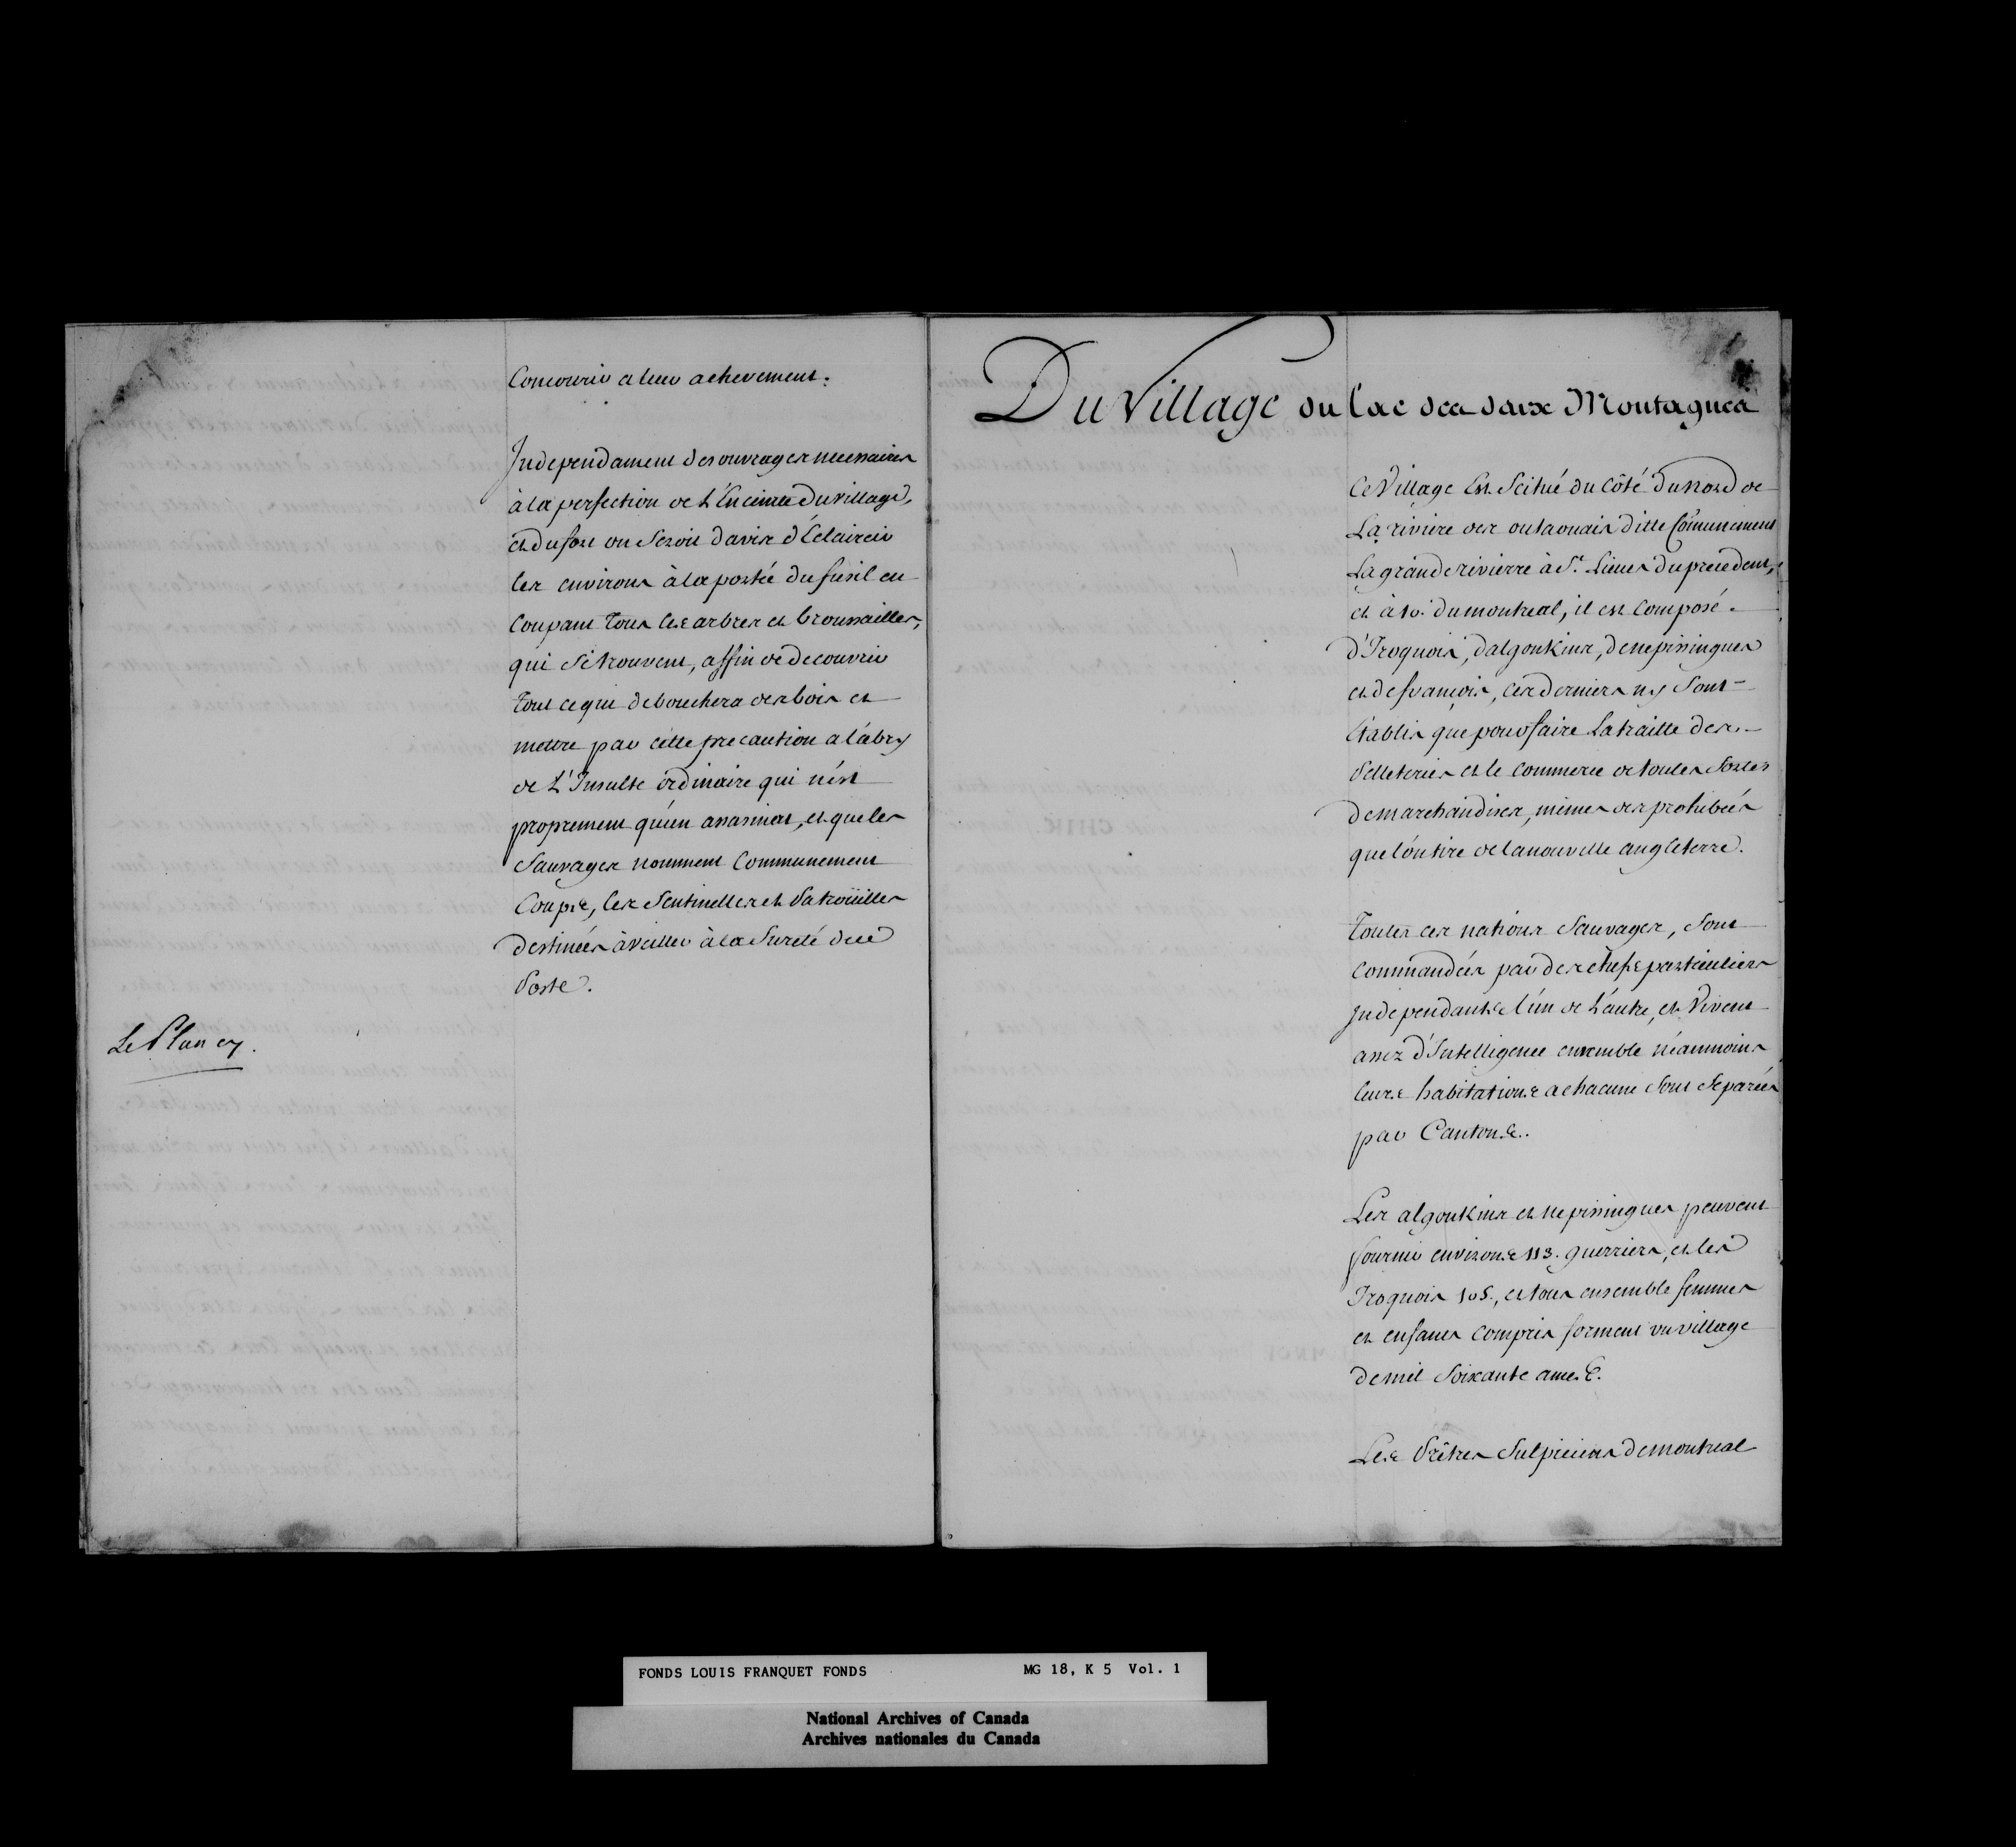 Concourir a leur achevement.
Independament des ouvrages necessaires
à la perfection de L'Enceinte du village,
et du fort on seroit d'avis d'Eclaircir
les environs à la portée du fusil en
Coupant tous les arbres et broussailles,
qui s'étrouvent, affin de decouvrir
tout ce qui debouchera des bois et
mettre par cette precaution a l'abry
de L'Insulte ordinaire qui n'ést
proprement qu'un assasinat, et que les
Sauvages nomment Communement
Coups, les Sentinelles et Patroüilles
destinées à veiller à la Sureté du
Poste.
Le Plan cy.
Du Village du lac des deux Montagnes
Ce Village Est Scitué du Côté du Nord de
La riviere des outaouais ditte Comunement
La grande rivierre à 5.t Lieues du precedent,
et à 10. du montreal, il est Composé
d'Iroquois, d'algonkins, de nepissingues
et de françois, ces derniers n'y Sont
Etablis que pour faire La traitte des
Pelleteries et le Commerce de toutes Sortes
de marchandises, mêmes des prohibées
que l'on tire de la nouvelle angleterre.
Toutes ces nations Sauvages, Sont
Commandées par des chefs particuliers
Independants l'un de L'autre, et Vivent
assez d'Intelligence ensemble néanmoins
leurs habitations a chacune Sont Separées
par Cantons.
Les algonkins et nepissingues peuvent
fournir environs 113. guerriers, et les
Iroquois 105., et tous ensemble femmes
et enfants Compris forment un village
de mil Soixante ames.
Les Prêtres Sulpiciens de montreal
FONDS LOUIS FRANQUET FONDS MG 18, K 5 Vol. 1
National Archives of Canada
Archives nationales du Canada